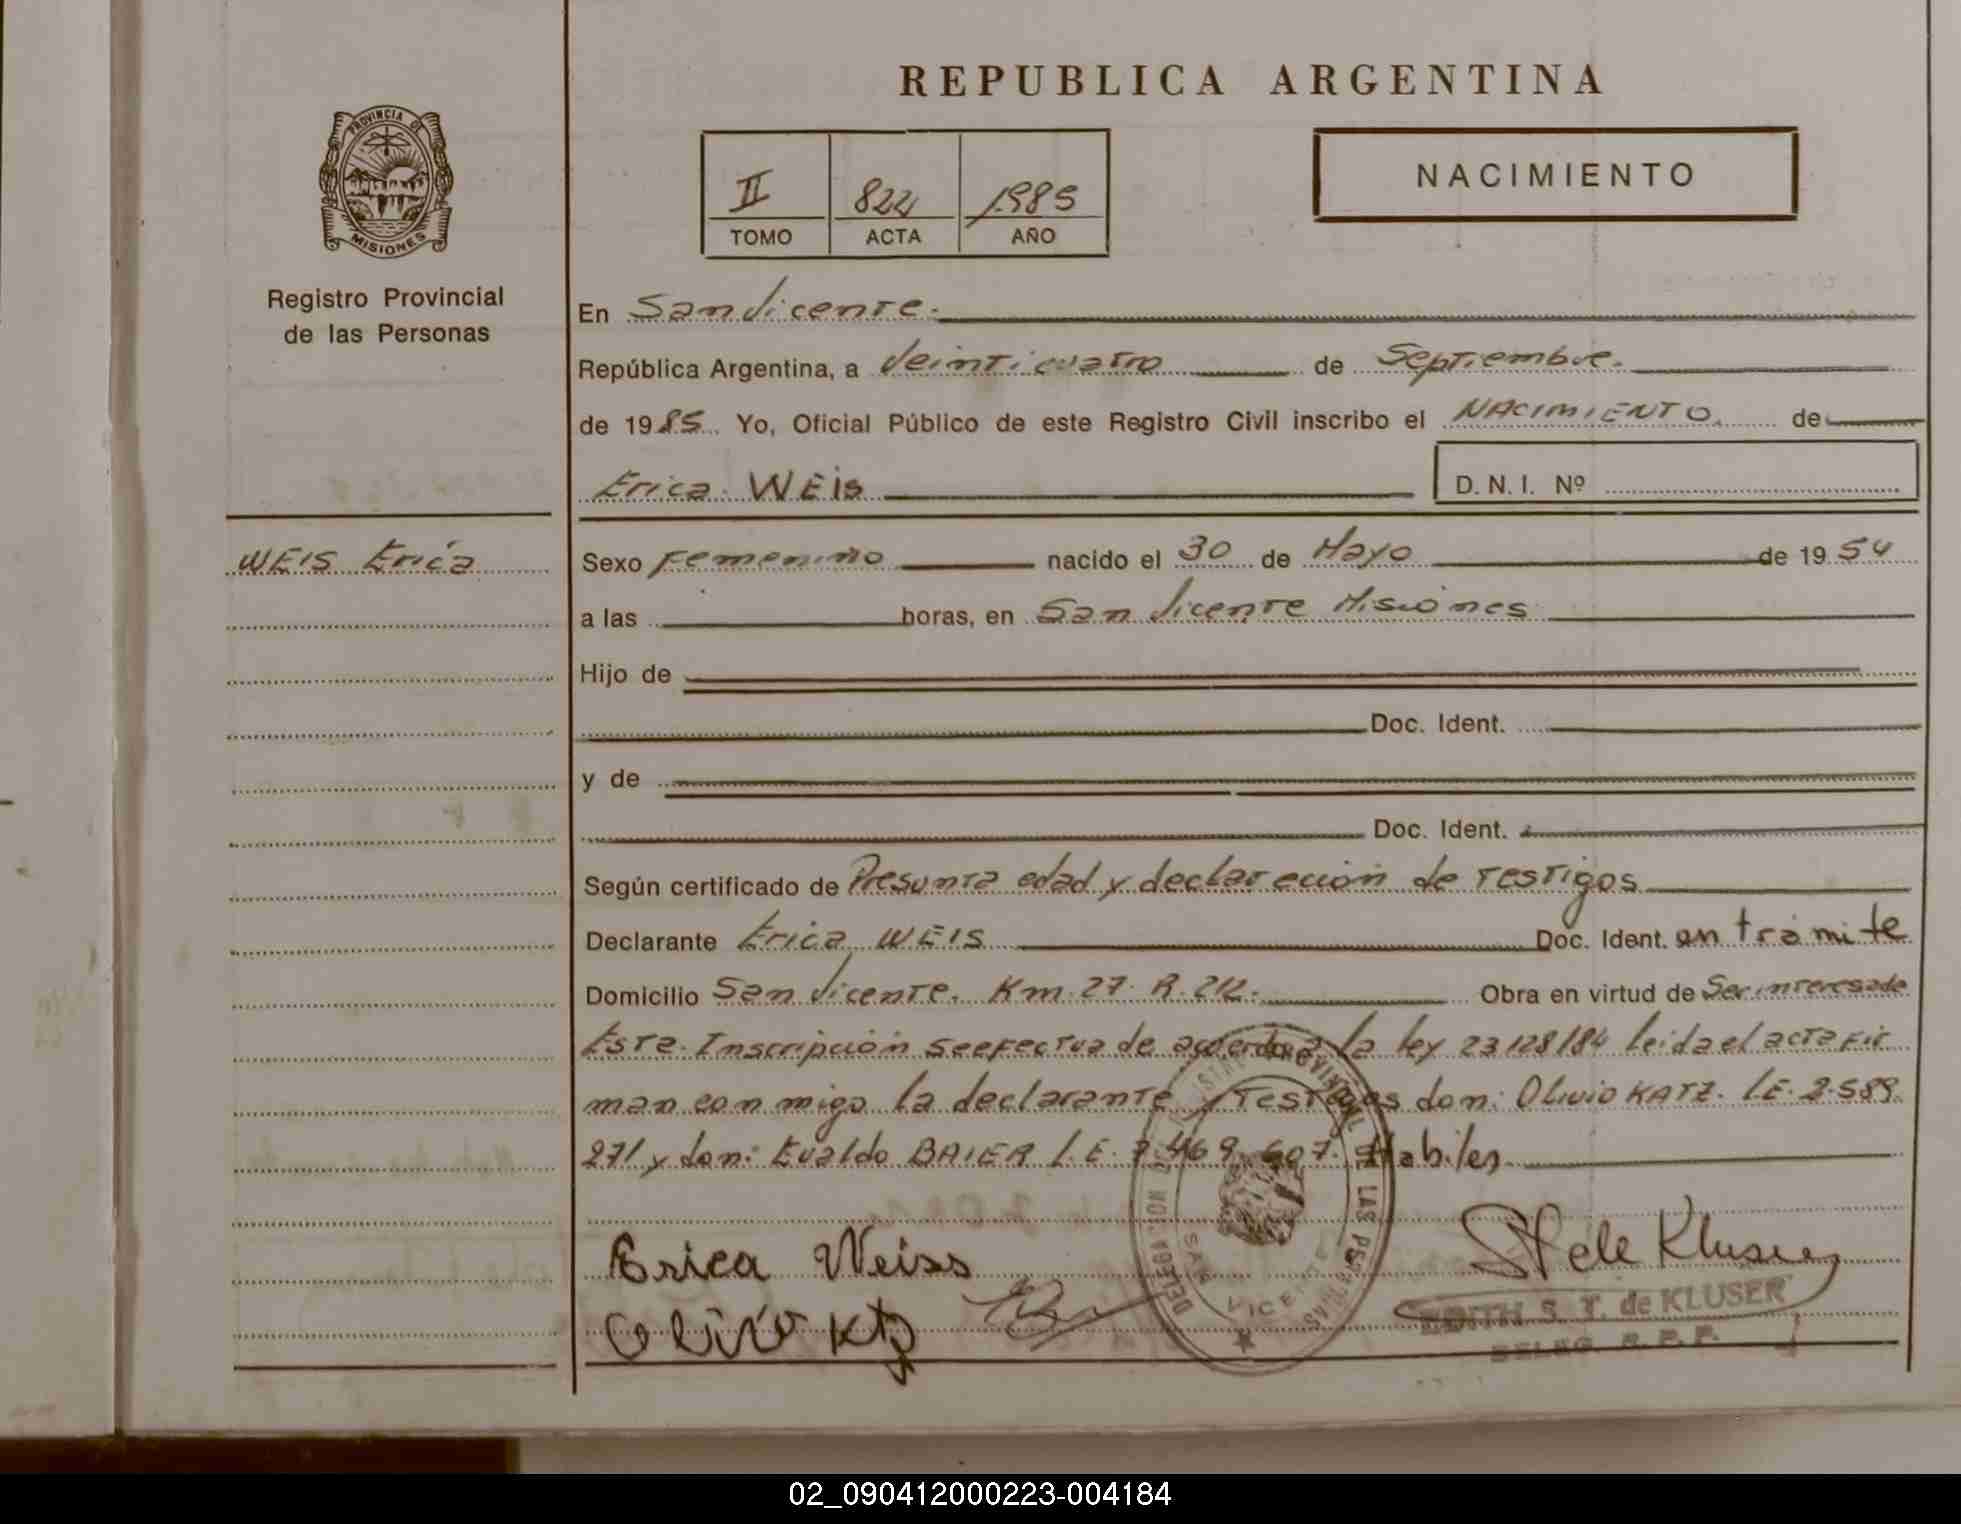 REPUBLICA ARGENTINA
PROVINCIA DE
MISIONES
Registro Provincial
de las Personas
II 822 1985
TOMO ACTA AÑO
NACIMIENTO
En San Vicente.
República Argentina, a Veinticuatro de Septiembre.
de 1985. Yo, Oficial Público de este Registro Civil inscribo el NACIMIENTO. de
Erica WEis
D. N. I. Nº
WEIS Erica
Sexo Femenino nacido el 30 de Mayo de 1954
a las horas, en San Vicente Misiones
Hijo de
Doc. Ident.
y de
Doc. Ident.
Según certificado de Presunta edad y declaración de testigos
Declarante Erica WEIS Doc. Ident. en trámite
Domicilio San Vicente. Km 27. R. 212. Obra en virtud de Ser interesada
Esta Inscripción se efectua de acuerdo a la ley 23128/84 leida el acta fir
man con migo la declarante y Testigos don: Olivio KATZ. L.E. 2.589.
271 y don: Evaldo BAIER L.E. 7.469.607. Habiles
Erica Weiss
Olivio
SAN VICENTE
DELEGA
LAS PERSONAS
EDITH S. T. de KLUSER
DELEG. R. P. P.
02_090412000223-004184